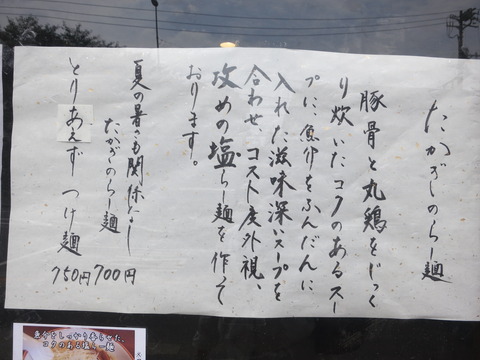 たかがしのらー麺
豚骨と丸鶏をじっく
り炊いたコクのあるスー
プに魚介をふんだんに
入れた滋味深いスープを
合わせ、コスト度外視、
攻めの塩らー麺を作って
おります。
夏の暑さも関係なし
たかがしのらー麺 700円
とりあえず つけ麺 750円
コクのある塩らー麺